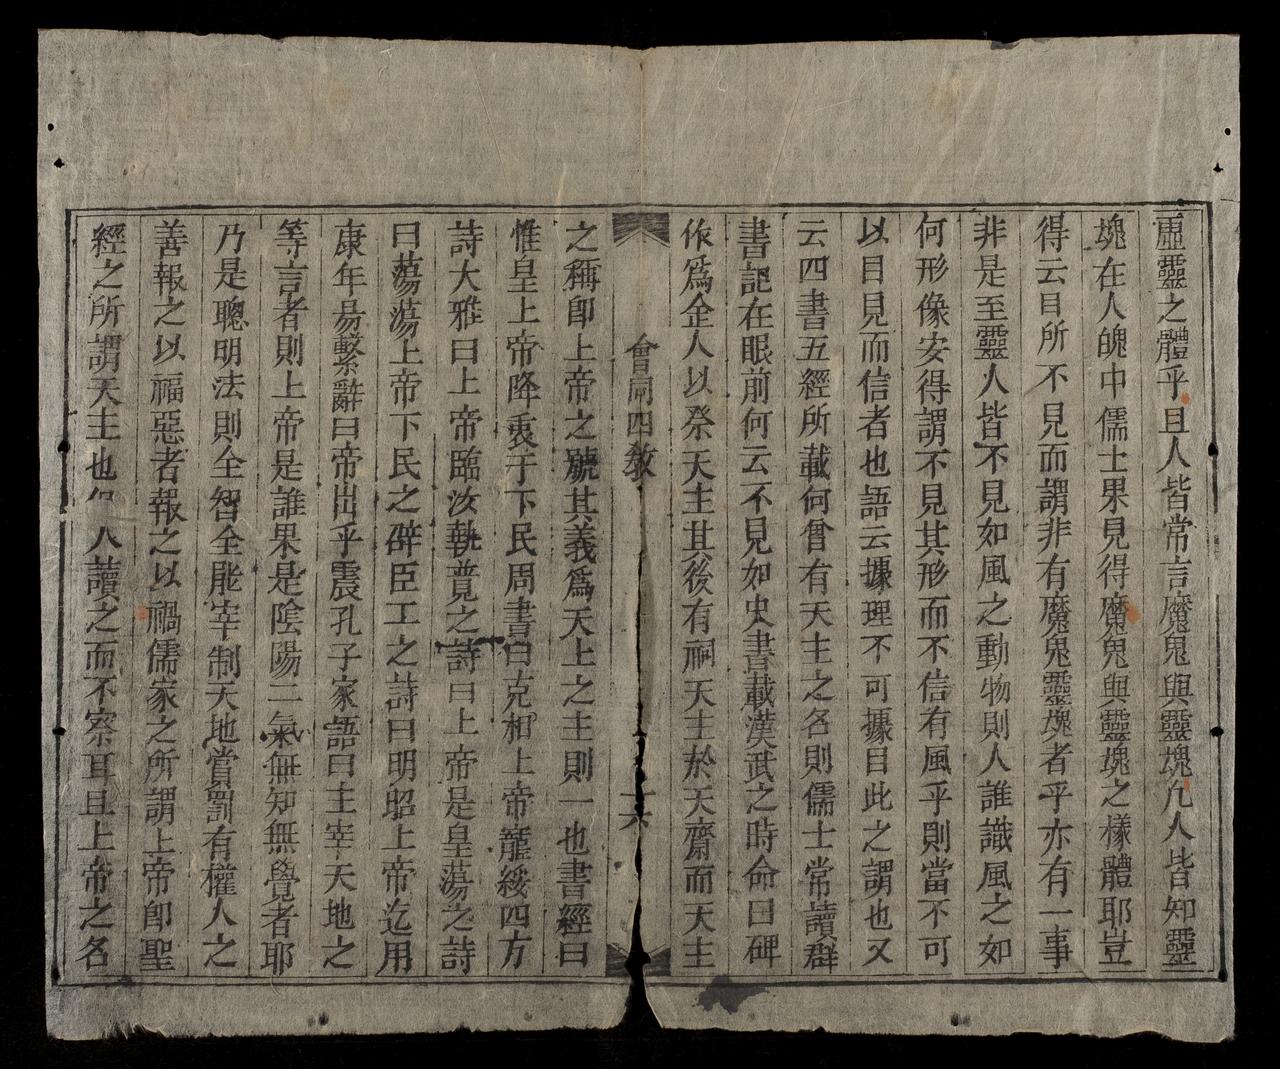 虛靈之體乎且人皆常言魔鬼與靈塊凢人皆知靈
塊在人魄中儒士果見得魔鬼與靈塊之樣體耶豈
得云目所不見而謂非有魔鬼靈塊者乎亦有一事
非是至靈人皆不見如風之動物則人誰識風之如
何形像安得謂不見其形而不信有風乎則當不可
以目見而信者也語云據理不可據目此之謂也又
云四書五經所載何曾有天主之名則儒士常讀群
書記在眼前何云不見如史書載漢武之時命曰碑
作爲企人以祭天主其後有祠天主於天齋而天主
會同四教
十六
之稱卽上帝之號其義爲天上之主則一也書經曰
惟皇上帝降衷于下民周書曰克相上帝寵綏四方
詩大雅曰上帝臨汝執竟之詩曰上帝是皇蕩之詩
曰蕩蕩上帝下民之辟臣工之詩曰明昭上帝迄用
康年易繫辭曰帝出乎震孔子家語曰主宰天地之
等言者則上帝是誰果是陰陽二氣無知無覺者耶
乃是聰明法則全智全能宰制天地賞罰有權人之
善報之以福惡者報之以禍儒家之所謂上帝卽聖
經之所謂天主也 人讀之而不察耳且上帝之名